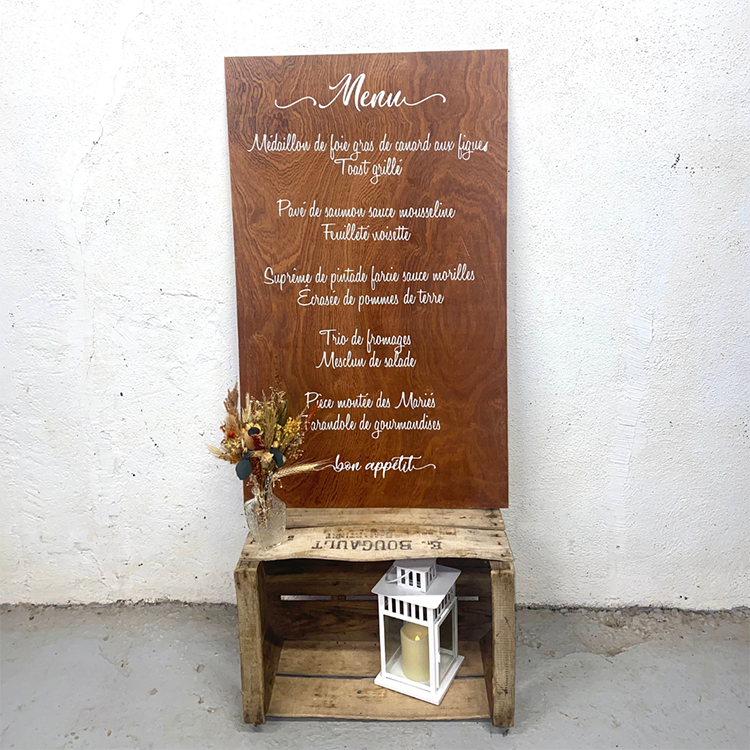 Menu
Médaillon de foie gras de canard aux figues
Toast grillé
Pavé de saumon sauce mousseline
Feuilleté noisette
Suprême de pintade farcie sauce morilles
Écrasée de pommes de terre
Trio de fromages
Mesclun de salade
Pièce montée des Mariés
Farandole de gourmandises
bon appétit
E. BOUGAULT